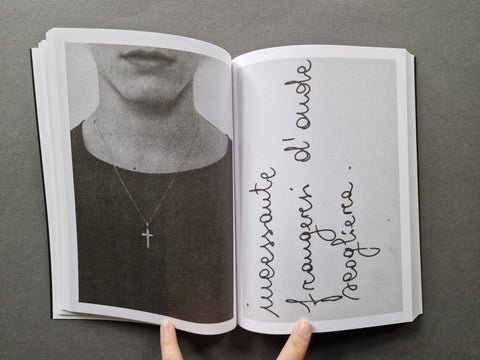 incessante
frangersi d'onde
scogliera.